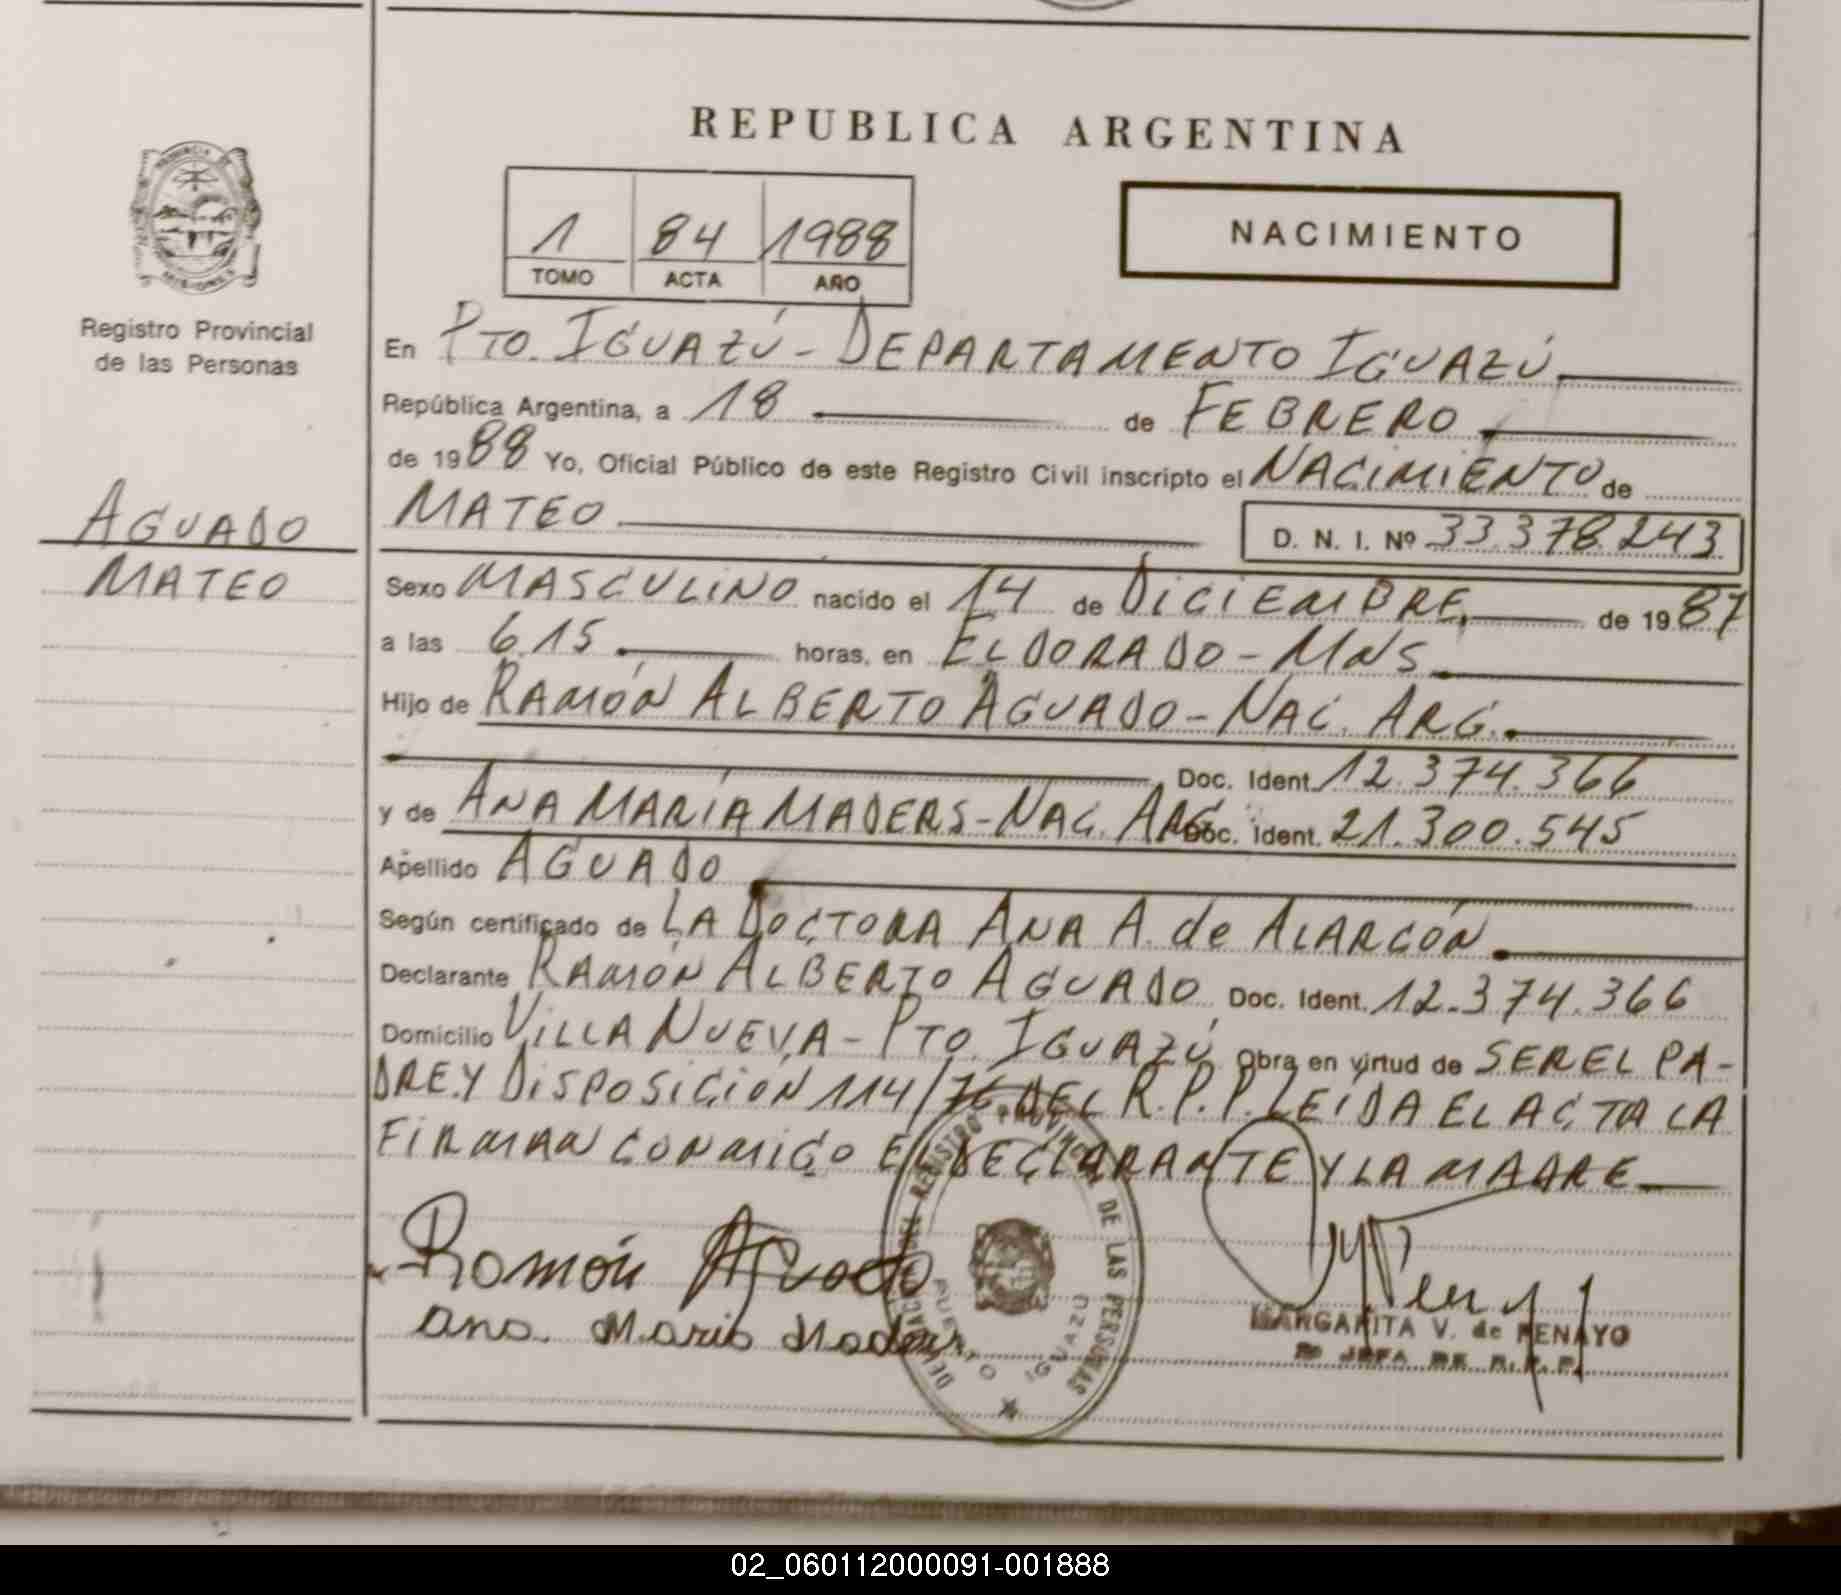 REPUBLICA ARGENTINA
1 84 1988
TOMO ACTA AÑO
NACIMIENTO
PROVINCIA DE MISIONES
Registro Provincial
de las Personas
AGUADO
MATEO
En PTO. IGUAZÚ - DEPARTAMENTO IGUAZÚ
República Argentina, a 18 de FEBRERO
de 1988 Yo, Oficial Público de este Registro Civil inscripto el NACIMIENTO de
MATEO D. N. I. Nº 33.378.243
Sexo MASCULINO nacido el 14 de DICIEMBRE de 1987
a las 6.15 horas, en ELDORADO - MNS
Hijo de RAMÓN ALBERTO AGUADO - NAC. ARG.
Doc. Ident. 12.374.366
y de ANA MARÍA MADERS - NAC. ARG Doc. Ident. 21.300.545
Apellido AGUADO
Según certificado de LA DOCTORA ANA A. de ALARCÓN
Declarante RAMÓN ALBERTO AGUADO Doc. Ident. 12.374.366
Domicilio VILLA NUEVA - PTO. IGUAZÚ Obra en virtud de SER EL PA-
DRE Y DISPOSICIÓN 114/76 DEL R.P.P. LEÍDA EL ACTA LA
FIRMAN CONMIGO EL DECLARANTE Y LA MADRE
Ramón Aguado
Ana Maria Maders
DEL REGISTRO PROVINCIAL DE LAS PERSONAS
PUERTO IGUAZU
MARGARITA V. de PENAYO
JEFA DE R.P.P.
02_060112000091-001888